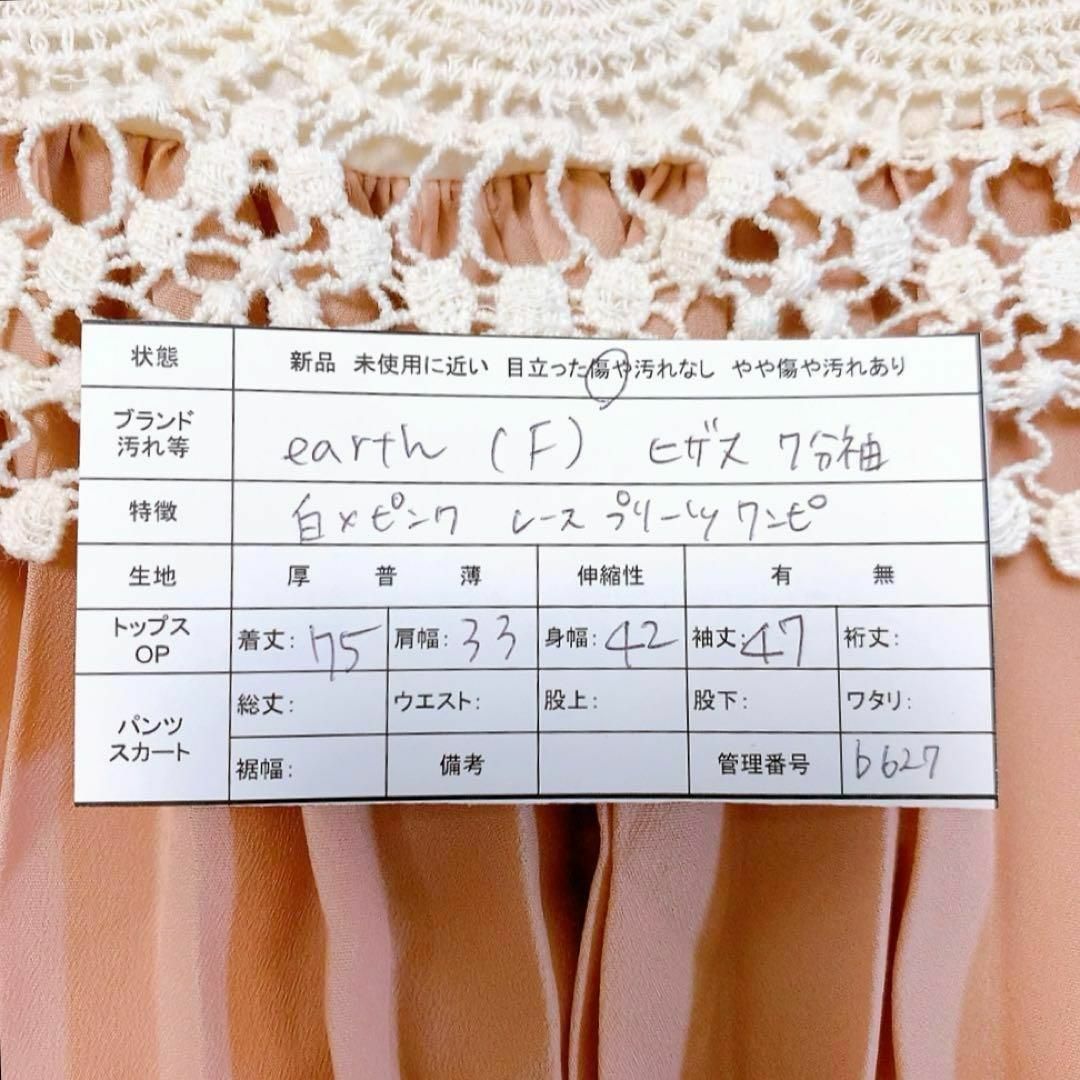 状態 新品 未使用に近い 目立った傷や汚れなし やや傷や汚れあり
ブランド
汚れ等 earth (F) ヒザス 7分袖
特徴 白×ピンク レース プリーツワンピ
生地 厚 普 薄 伸縮性 有 無
トップス
OP 着丈: 75 肩幅: 33 身幅: 42 袖丈: 47 裄丈:
パンツ
スカート 総丈: ウエスト: 股上: 股下: ワタリ:
裾幅: 備考 管理番号 b627